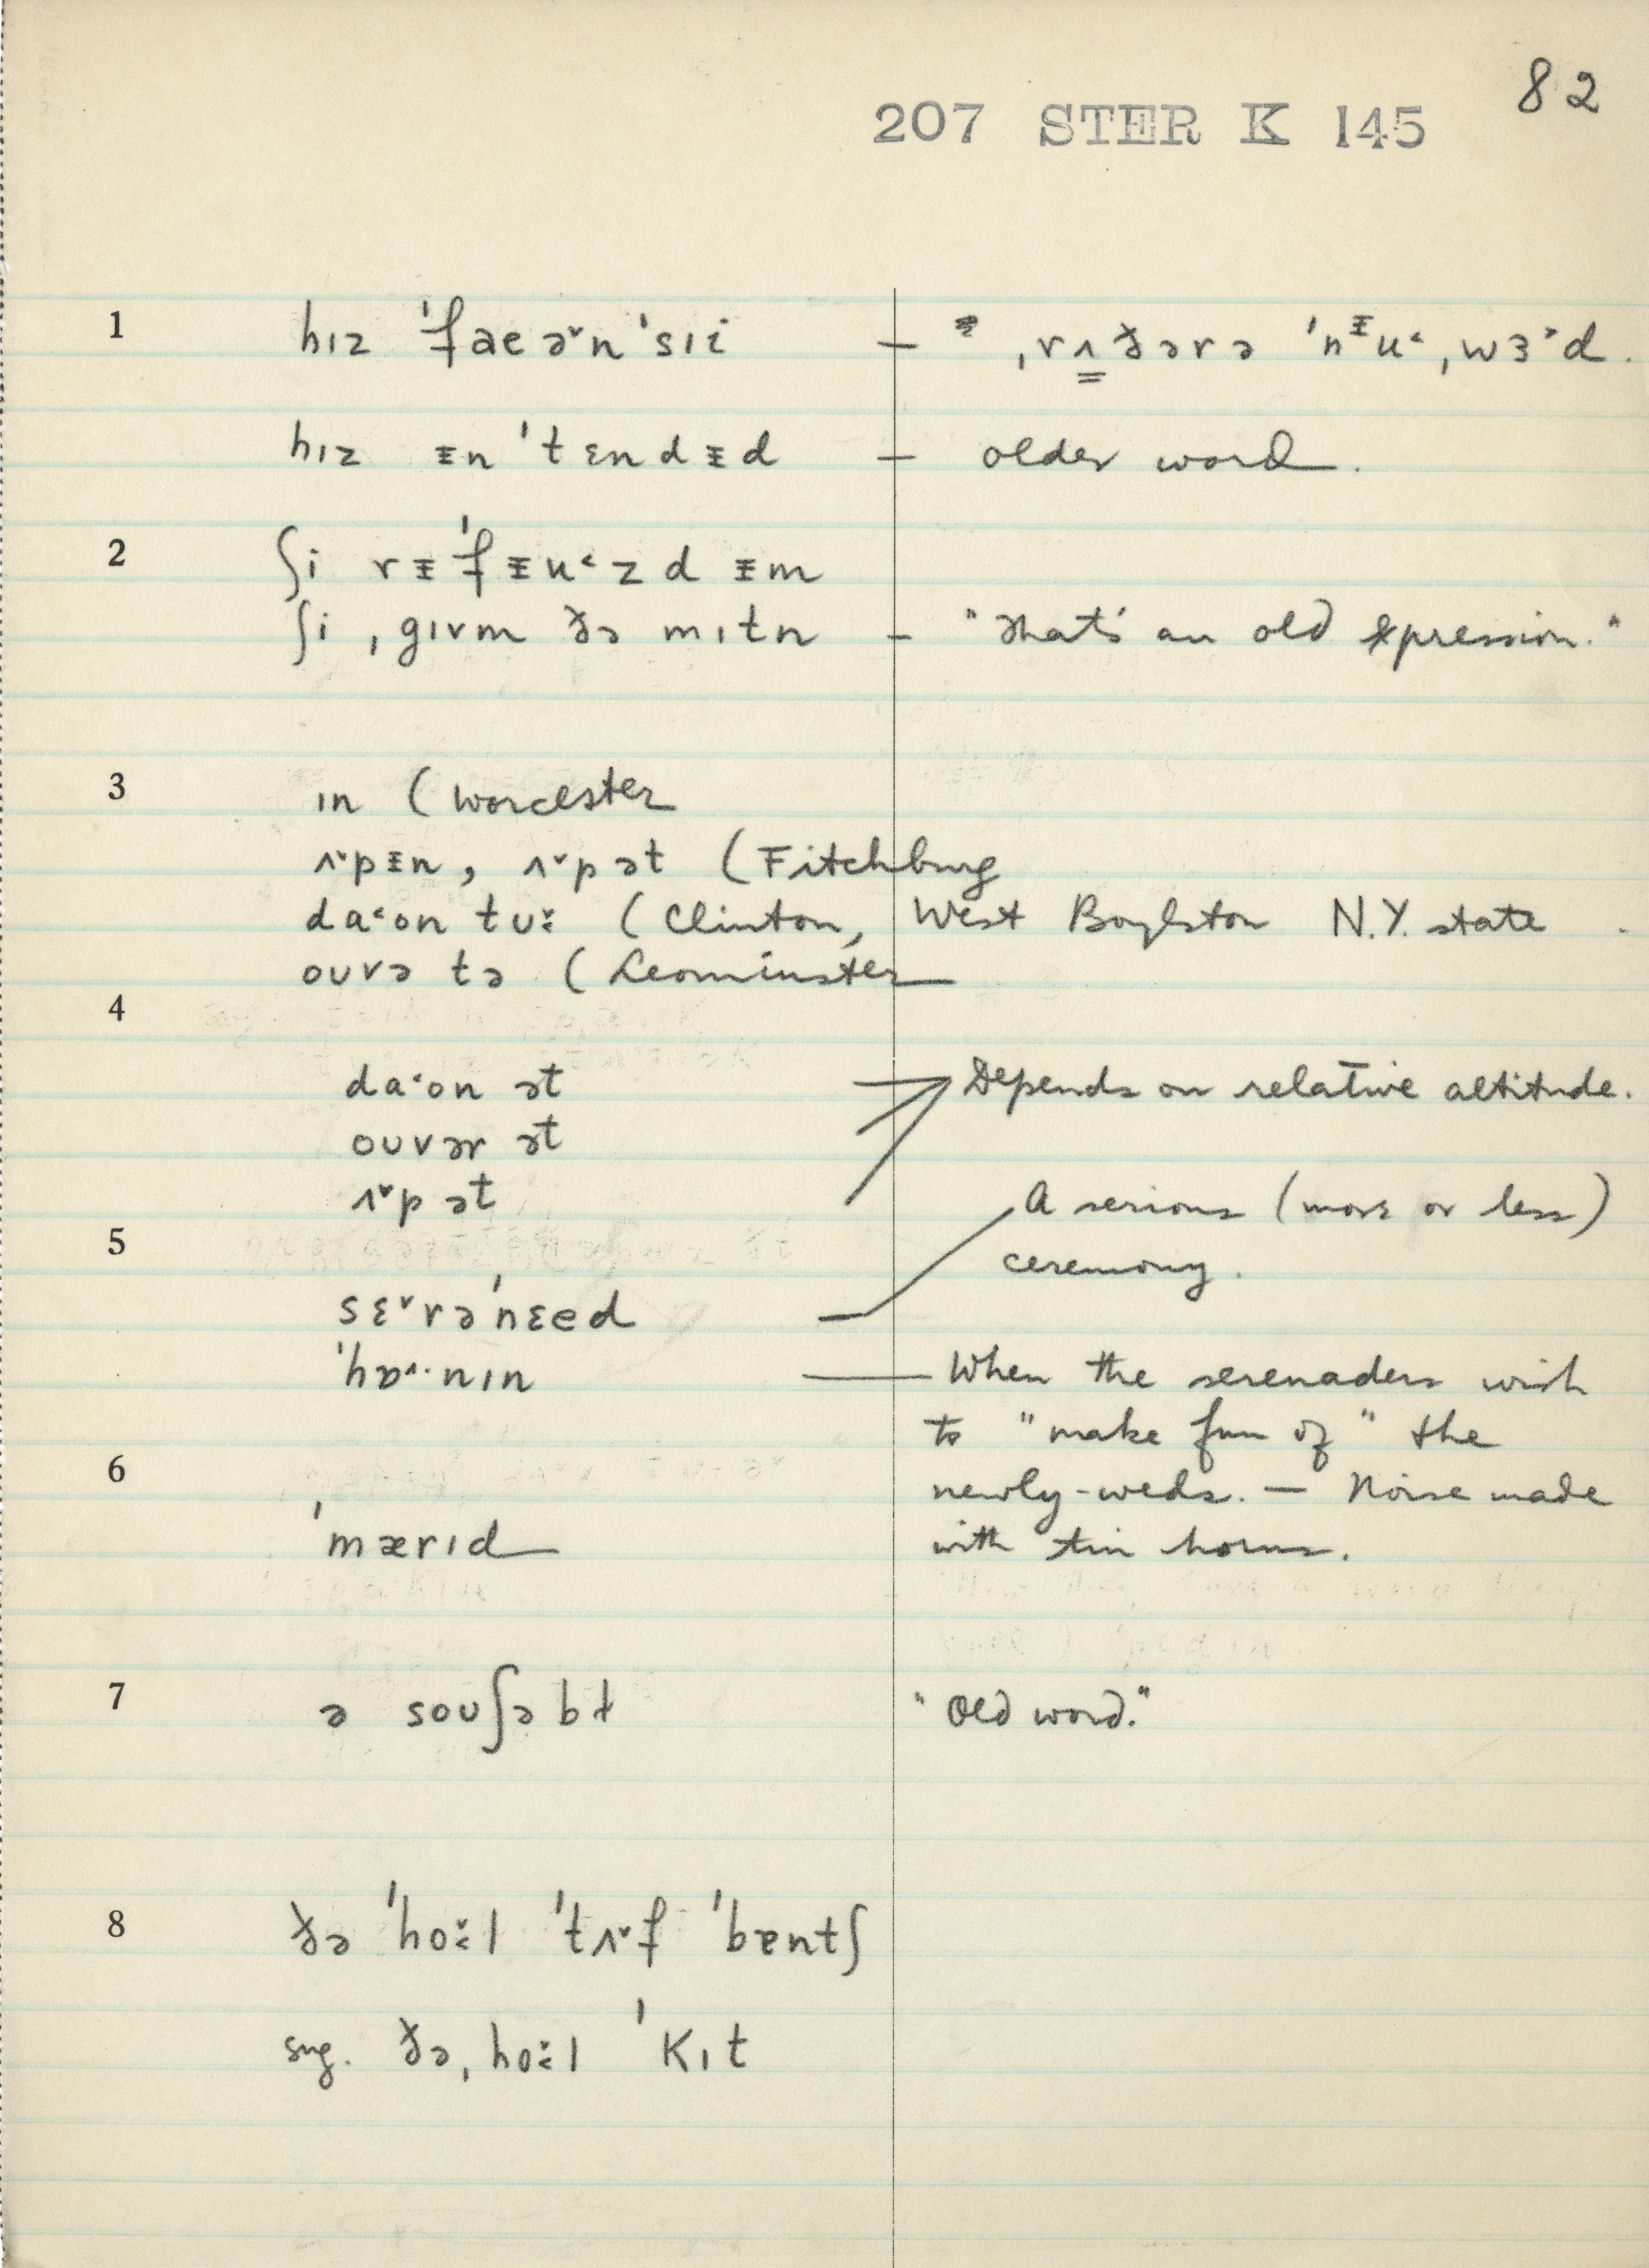 82
207 STER K 145
1 hɪz ˈfae ə˅n ˈsɪi — " ˌrʌ̳ðərə ˈnᵻu˂ˌwɜ˃d.
hɪz ᵻn ˈtɛndᵻd — older word.
2 ʃi rᵻˈfᵻu˂zd ᵻm
ʃi ˌgɪvm ðə mɪtn — "That's an old expression."
3 ɪn (Worcester
ʌ˅pᵻn, ʌ˅p ət (Fitchburg
da˂on tʊ: (Clinton, West Boylston N.Y. state.
oʊvə tə (Leominster
4
da˂on ət Depends on relative altitude.
oʊvər ət
ʌ˅p ət A serious (more or less)
5 ceremony.
sɛ˅rəˈnɛed
ˈhɒ˄·nɪn — When the serenaders wish
to "make fun of" the
6 newly-weds. — Noise made
ˈmærɪd with tin horns.
7 ə soʊʃəbɫ "Old word."
8 ðə ˈho:l ˈtʌ˅f ˈbɐntʃ
sug. ðəˌho:l ˈkɪt